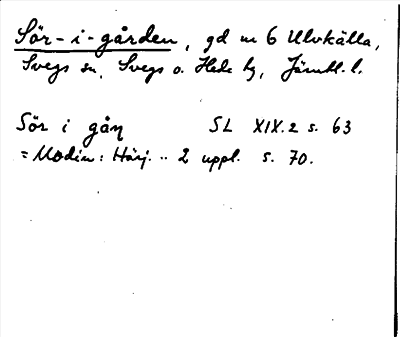 Sör-i-gården, gd nr 6 Ulvkälla,
Svegs sn, Svegs o. Hede tg, Jämtl. l.
Sör i gån SL XIX.2 s. 63
= Modin: Härj. .. 2 uppl. s. 70.